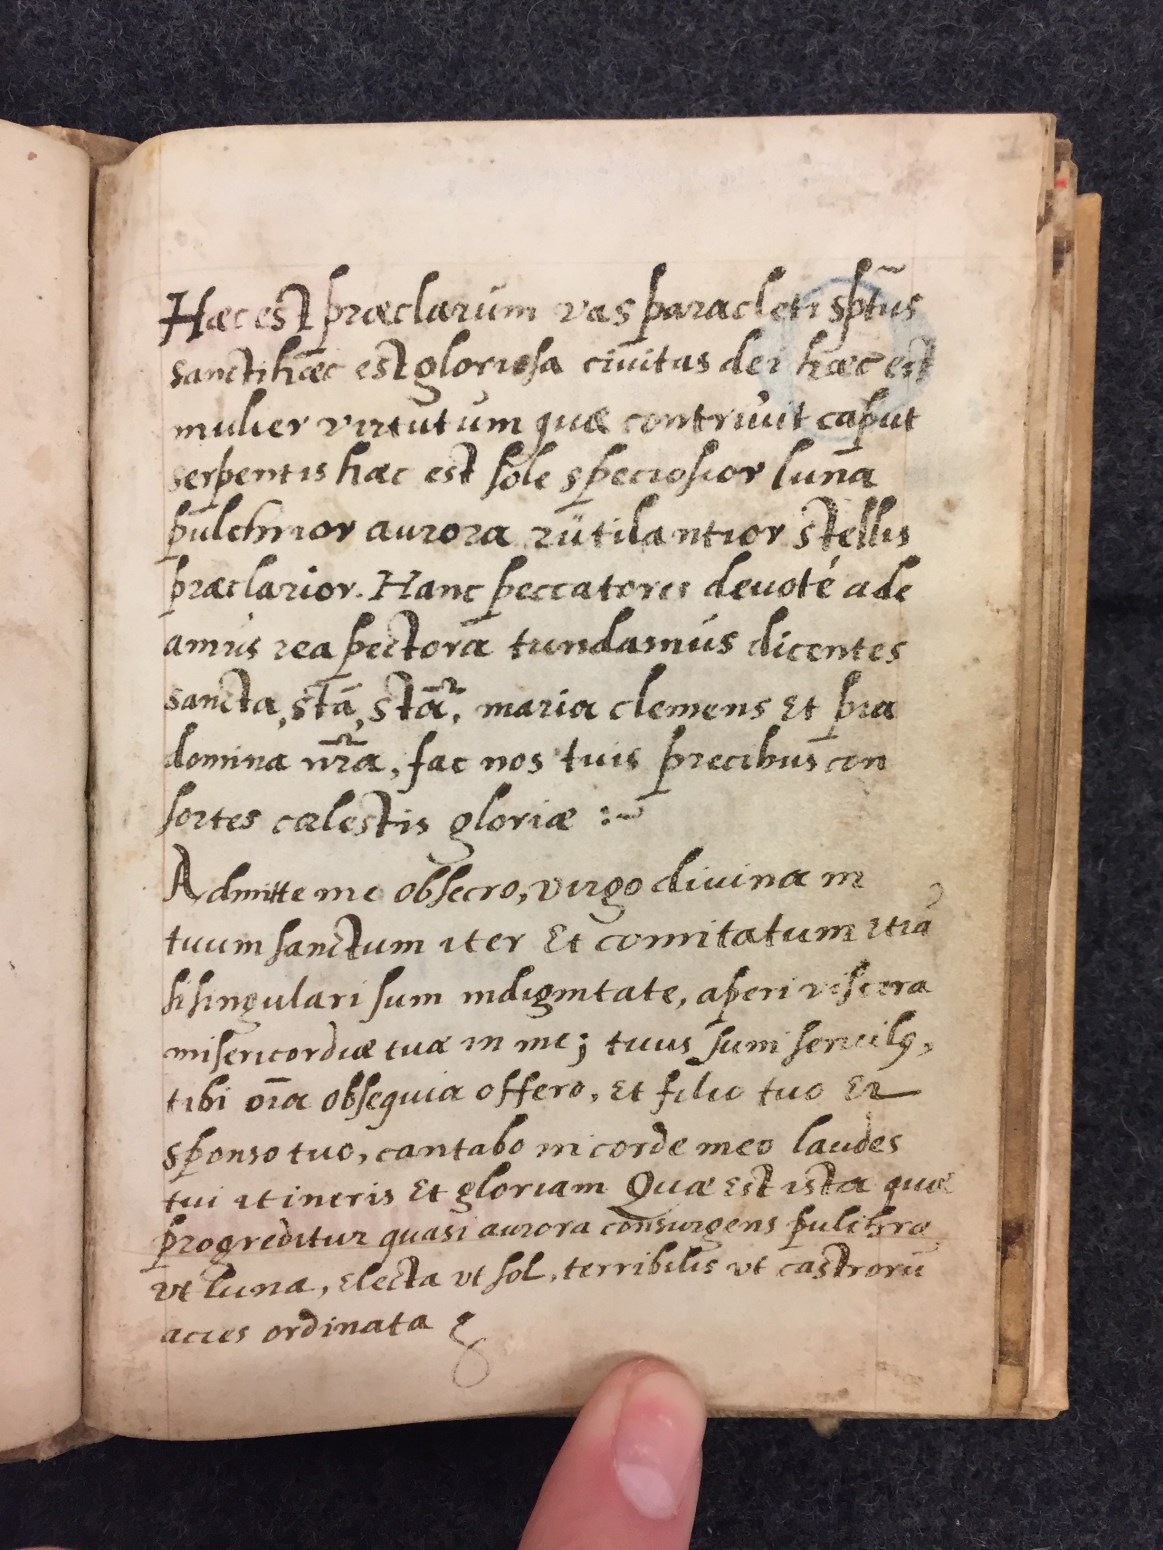 Hæc est præclarum vas paracleti sptũs
sancti hæc est gloriosa civitas dei hæc est
mulier virtutum quæ contrivit caput
serpentis hæc est sole speciosior luna
pulchrior aurora rutilantior stellis
præclarior. Hanc peccatores devoté ade
amus rea pectora tundamus dicentes
sancta, stã, stã, maria clemens et pia
domina nr̃a, fac nos tuis precibus con
sortes cælestis gloriæ :~
Admitte me obsecro, virgo divina in
tuum sanctum iter Et comitatum etiã
si singulari sum indignitate, aperi viscera
misericordiæ tuæ in me; tuus sum
tibi oĩa obsequia offero, Et filio tuo Et
sponso tuo, cantabo in corde meo laudes
tui itineris Et gloriam Quæ Est ista quæ
progreditur quasi aurora consurgens pulchra
vt luna, Electa vt sol, terribilis vt castrorũ
acies ordinata